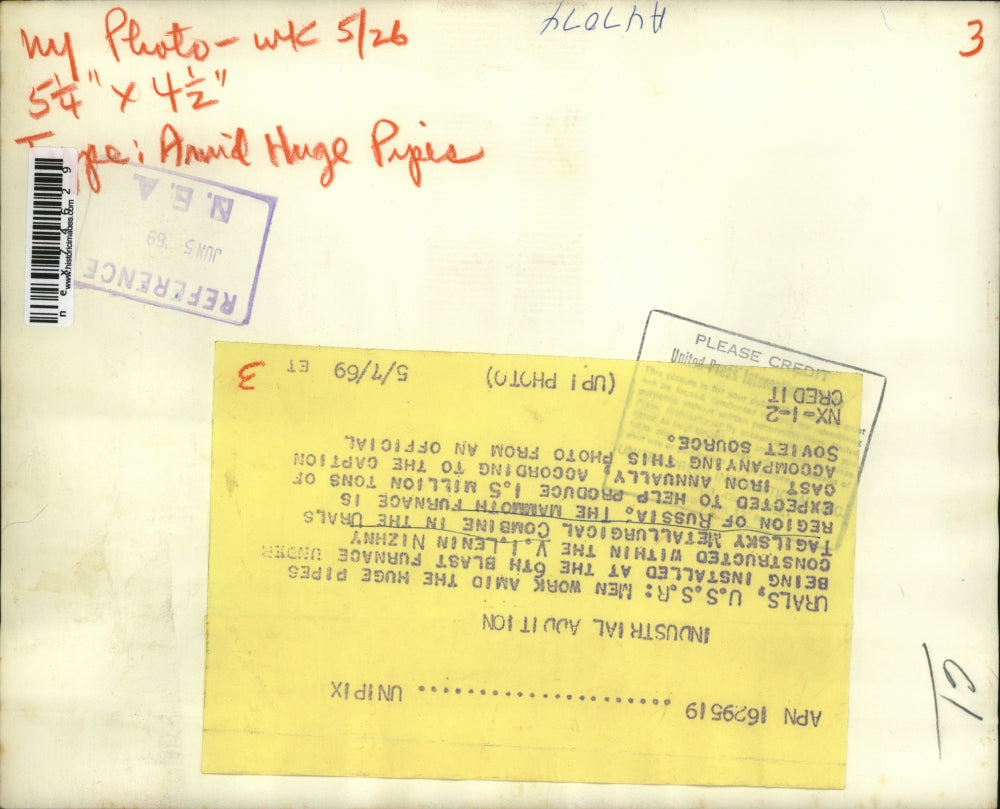 NY Photo - wk 5/26
5 1/4" x 4 1/2"
Type: Amid Huge Pipes
3
A47074
nex74629
www.historicimages.com
REFERENCE
JUN 5 '69
N.E.A.
PLEASE CREDIT
United Press International
APN 1629519 .................... UNIPIX
INDUSTRIAL ADDITION
URALS, U.S.S.R: MEN WORK AMID THE HUGE PIPES
BEING INSTALLED AT THE 6TH BLAST FURNACE UNDER
CONSTRUCTED WITHIN THE V.I.LENIN NIZHNY
TAGILSKY METALLURGICAL COMBINE IN THE URALS
REGION OF RUSSIA. THE MAMMOTH FURNACE IS
EXPECTED TO HELP PRODUCE 1.5 MILLION TONS OF
CAST IRON ANNUALLY, ACCORDING TO THE CAPTION
ACCOMPANYING THIS PHOTO FROM AN OFFICIAL
SOVIET SOURCE.
NX-1-2
CREDIT (UPI PHOTO) 5/7/69 ET
3